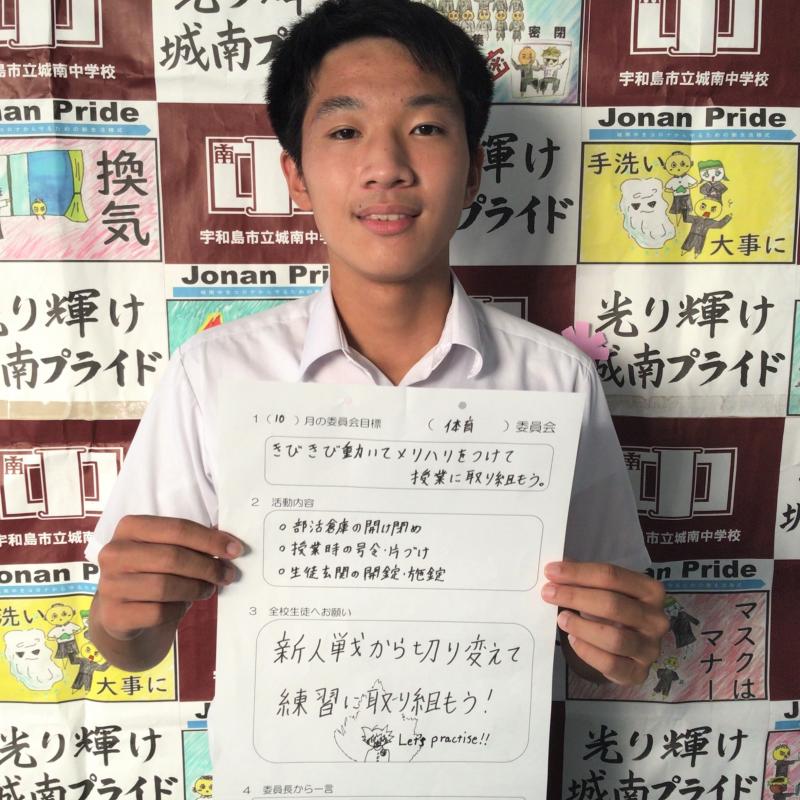 密閉
宇和島市立城南中学校
城南プライド
宇和島市立城南中学校
Jonan Pride
Jonan Pride
換気
南中
宇和島市立城南中
輝け
プライド
手洗い
大事に
Jonan Pri
光り輝け
南プライド
光り輝け
城南プライド
1 (10) 月の委員会目標 (体育) 委員会
きびきび動いてメリハリをつけて
授業に取り組もう。
2 活動内容
○ 部活倉庫の開け閉め
○ 授業時の号令・片づけ
○ 生徒玄関の開錠・施錠
3 全校生徒へお願い
新人戦から切り変えて
練習に取り組もう!
Let's practise!!
4 委員長から一言
南
和島市立城南中
南中
宇和島市立城南中学校
an Pride
n Pride
手洗い
大事に
マスクは
マナー
光り輝け
城南プライド
Jona
光り輝け
城南プライド